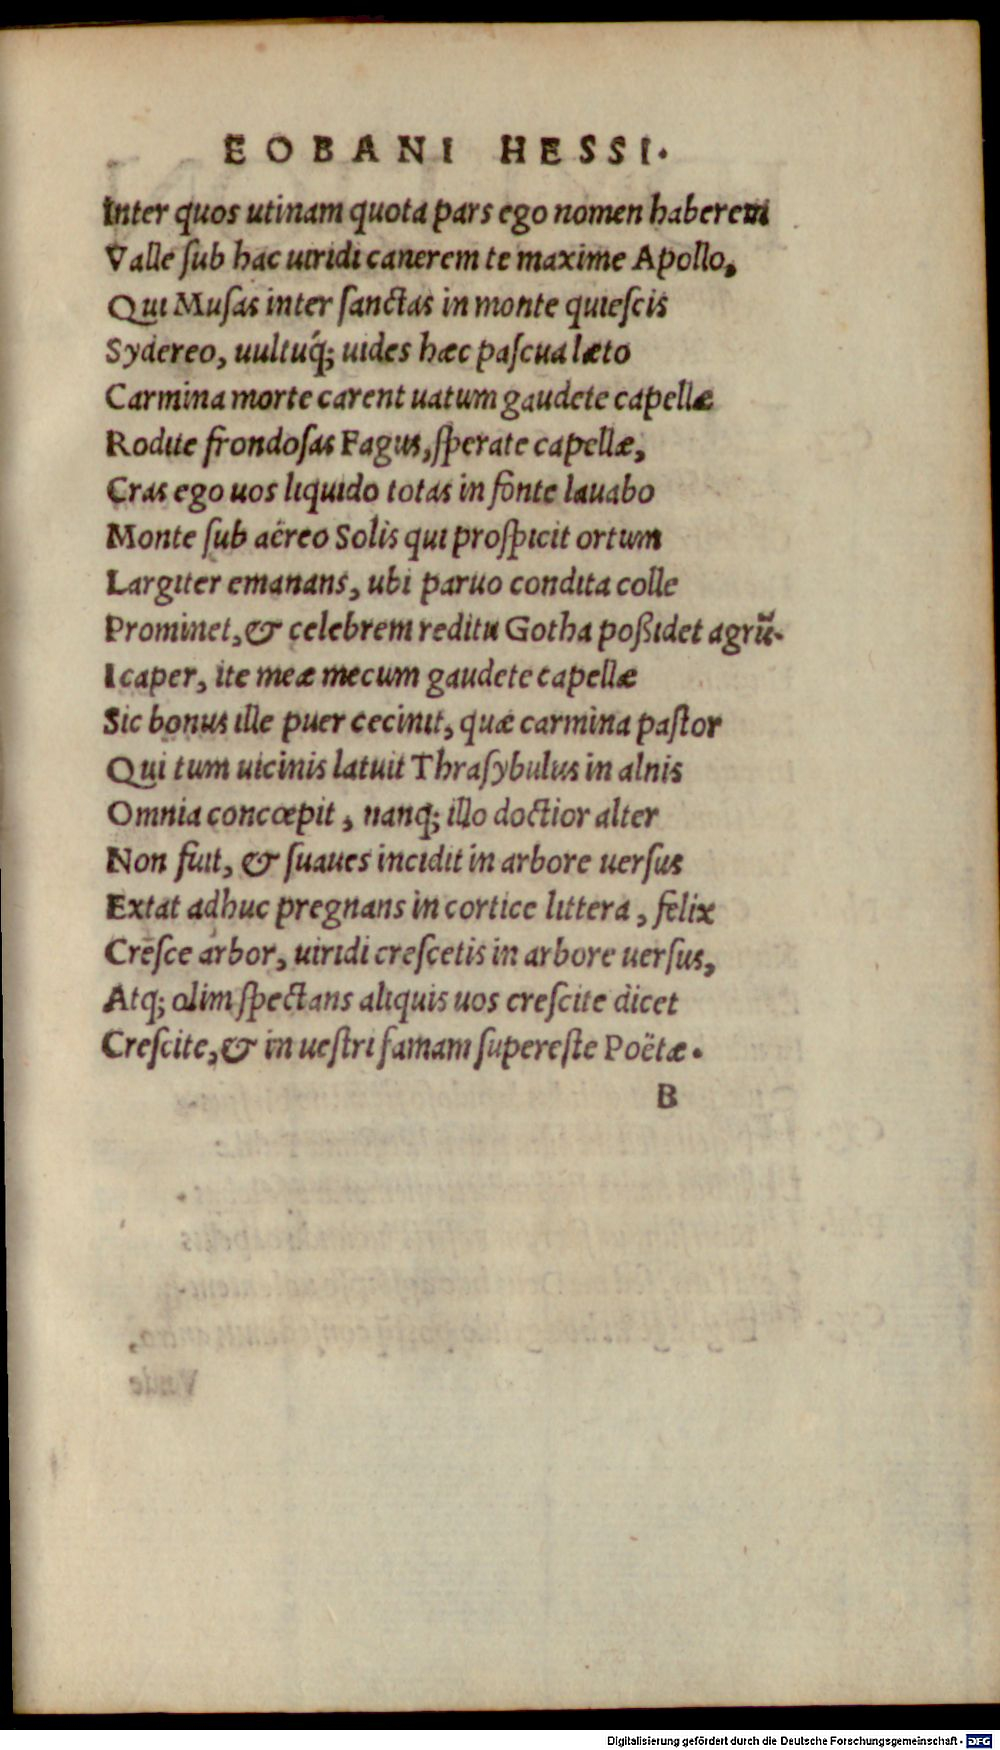 EOBANI HESSI.
Inter quos utinam quota pars ego nomen haberem
Valle ſub hac uiridi canerem te maxime Apollo,
Qui Muſas inter ſanctas in monte quieſcis
Sydereo, uultuq́; uides hæc paſcua læto
Carmina morte carent uatum gaudete capellæ
Rodite frondoſas Fagus, ſperate capellæ,
Cras ego uos liquido totas in fonte lauabo
Monte ſub aëreo Solis qui proſpicit ortum
Largiter emanans, ubi paruo condita colle
Prominet, & celebrem reditu Gotha poßidet agrũ.
I caper, ite meæ mecum gaudete capellæ
Sic bonus ille puer cecinit, quæ carmina paſtor
Qui tum uicinis latuit Thraſybulus in alnis
Omnia concœpit, nanq; illo doctior alter
Non fuit, & ſuaues incidit in arbore uerſus
Extat adhuc pregnans in cortice littera, felix
Creſce arbor, uiridi creſcetis in arbore uerſus,
Atq; olim ſpectans aliquis uos creſcite dicet
Creſcite, & in ueſtri famam ſupereſte Poëtæ.
B
Digitalisierung gefördert durch die Deutsche Forschungsgemeinschaft - DFG